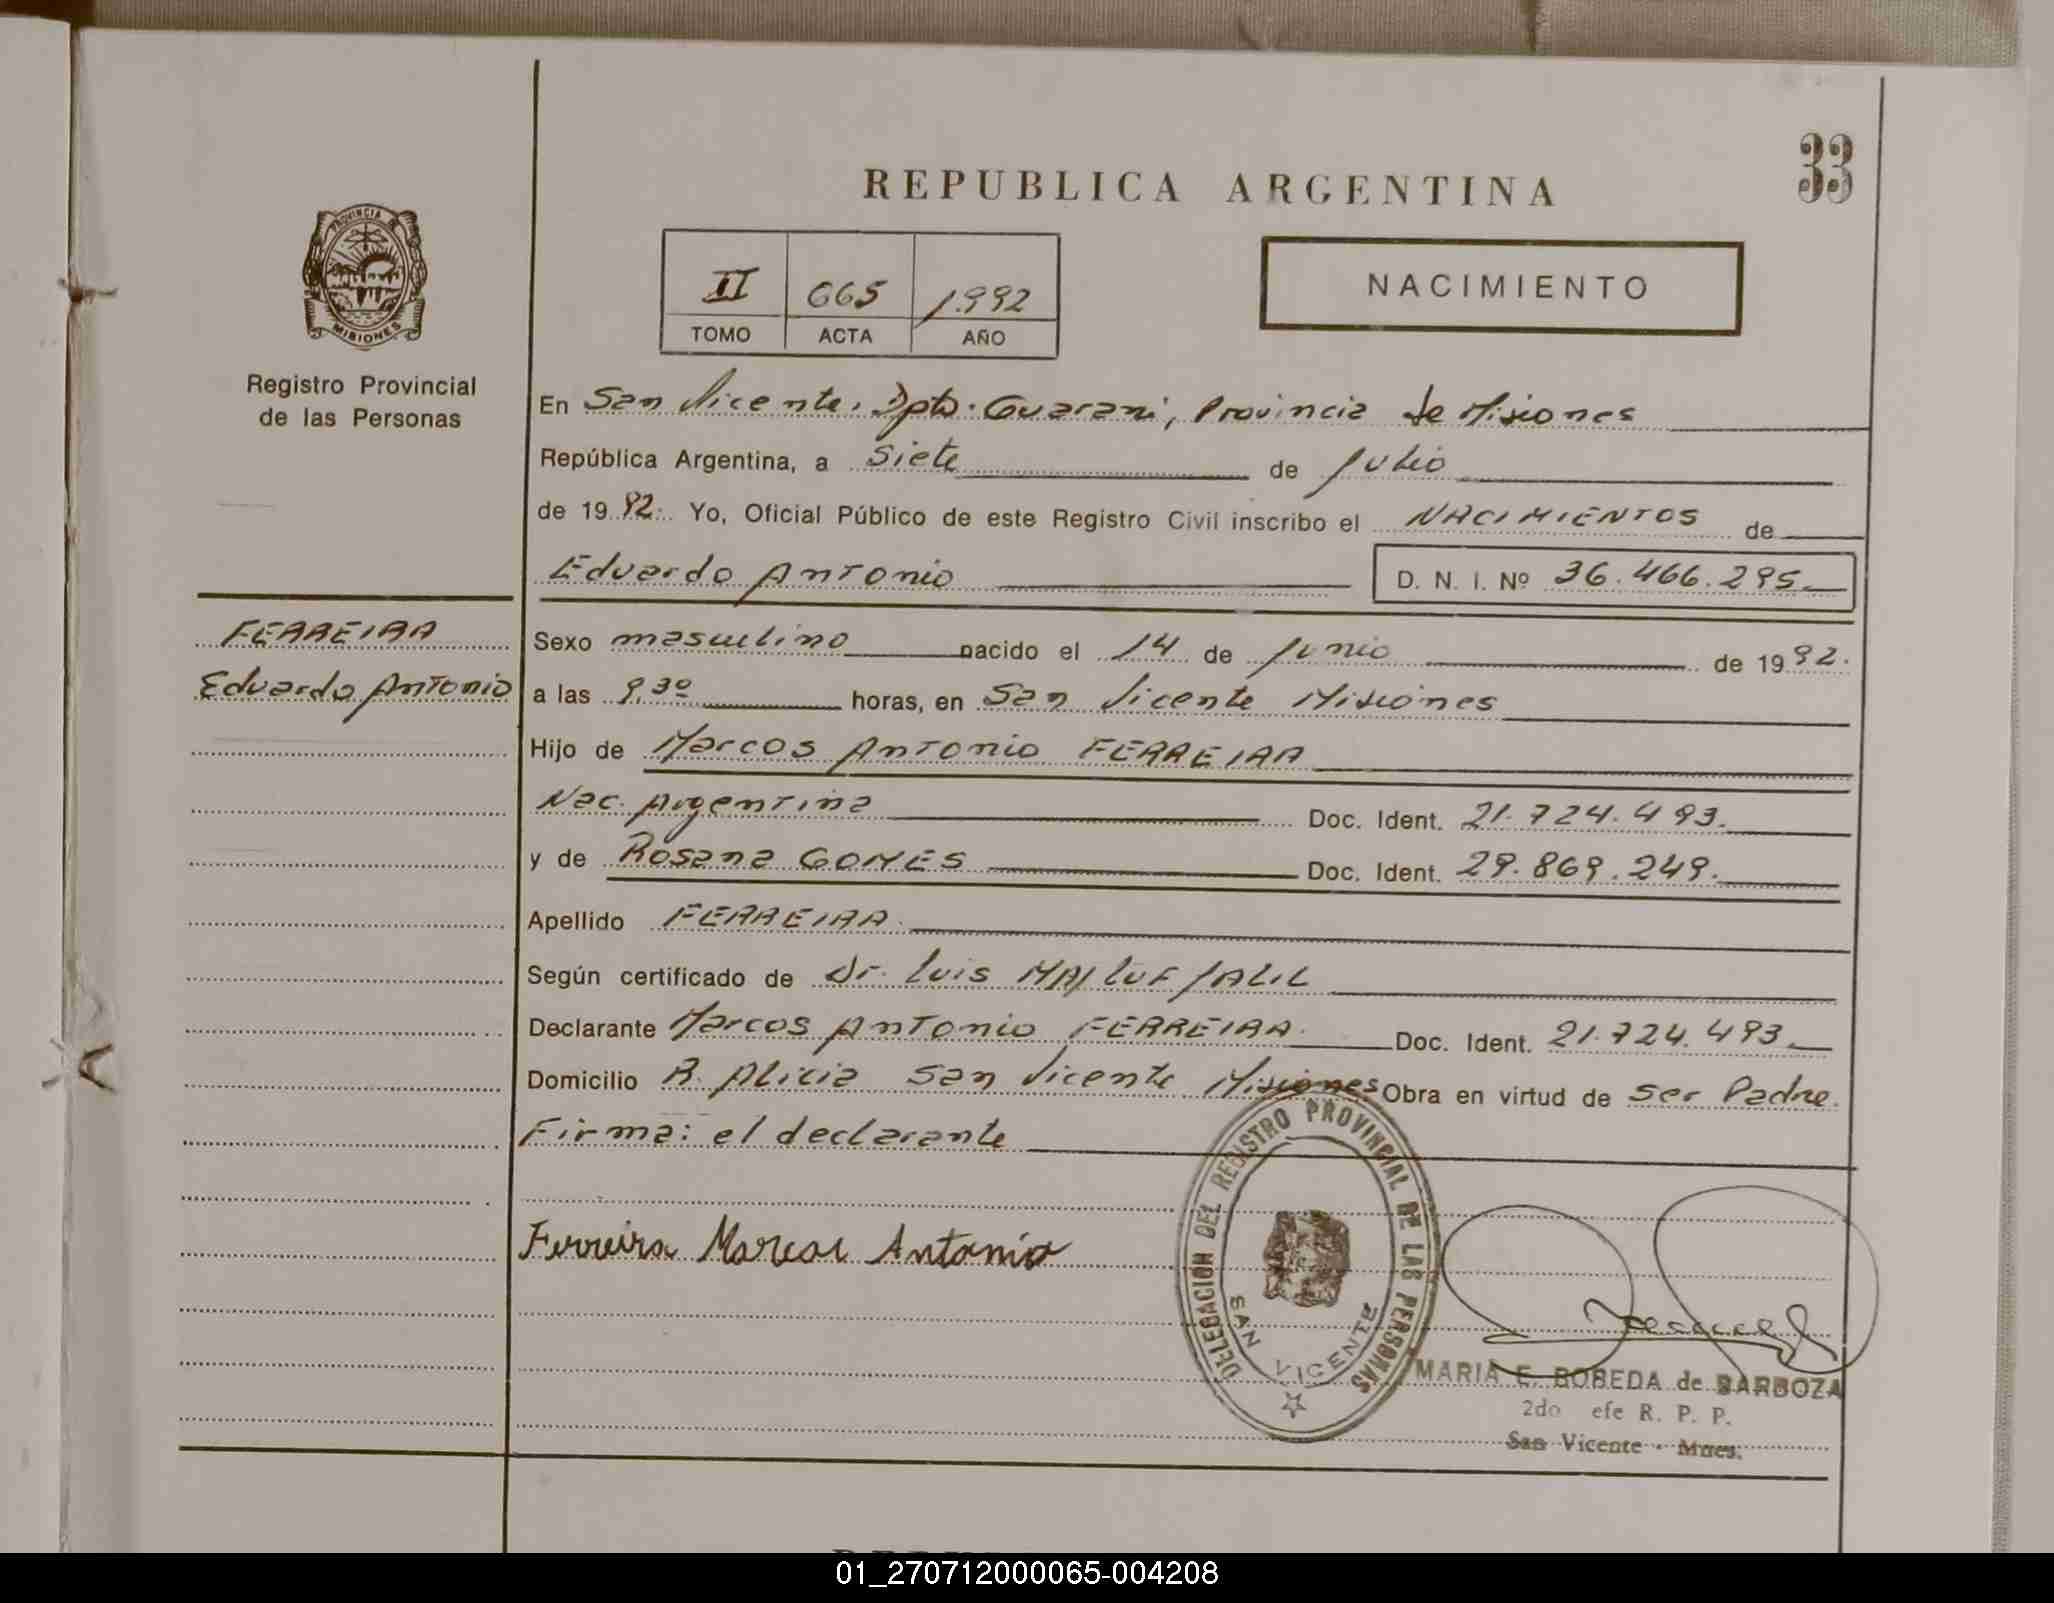 33
REPUBLICA ARGENTINA
PROVINCIA DE
MISIONES
Registro Provincial
de las Personas
II 665 1.992
TOMO ACTA AÑO
NACIMIENTO
En San Vicente. Dpto. Guarani, Provincia de Misiones
República Argentina, a Siete de Julio
de 1992. Yo, Oficial Público de este Registro Civil inscribo el NACIMIENTOS de
Eduardo Antonio D. N. I. Nº 36.466.295.
FERREIRA
Eduardo Antonio
Sexo masculino nacido el 14 de Junio de 1992.
a las 9,30 horas, en San Vicente Misiones
Hijo de Marcos Antonio FERREIRA
Nac. Argentina Doc. Ident. 21.724.493.
y de Rosana GOMES Doc. Ident. 29.869.249.
Apellido FERREIRA.
Según certificado de Dr. Luis MAJLUF JALIL
Declarante Marcos Antonio FERREIRA. Doc. Ident. 21.724.493.
Domicilio B. Alicia San Vicente Misiones Obra en virtud de Ser Padre.
Firma: el declarante
Ferreira Marcos Antonio
DELEGACION DEL REGISTRO PROVINCIAL DE LAS PERSONAS
SAN VICENTE
MARIA E. BOBEDA de BARBOZA
2do efe R. P. P.
San Vicente - Mnes.
A
01_270712000065-004208